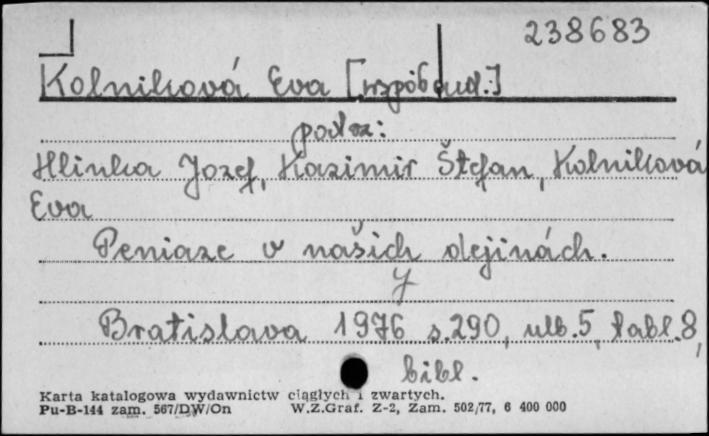 238683
Kolniková Eva [współaut.]
pod sz:
Hlinka Jozef, Kazimir Štefan, Kolniková
Eva
Peniaze v našich dejinách.
Bratislava 1976 s.290, ulb.5, tabl.8,
bibl.
Karta katalogowa wydawnictw ciągłych i zwartych.
Pu-B-144 zam. 567/DW/On W.Z.Graf. Z-2, Zam. 502/77, 6 400 000